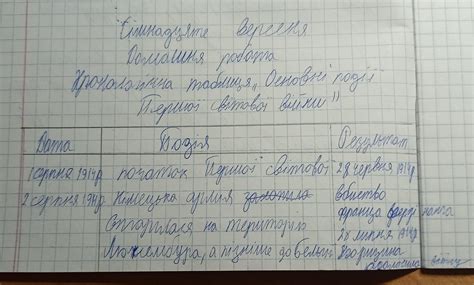 Сімнадцяте вересня
Домашня робота
Хронологічна таблиця „Основні події
Першої світової війни"
Дата Подія Результат
1 серпня 1914р. початок Першої Світової 28 червня 1914р
2 серпня 1914р Німецька армія захопила вбивство
створилася на територію франца фердінанта
Люксембура, а пізніше до Бельгії 28 липня 1914р
оголосила війну